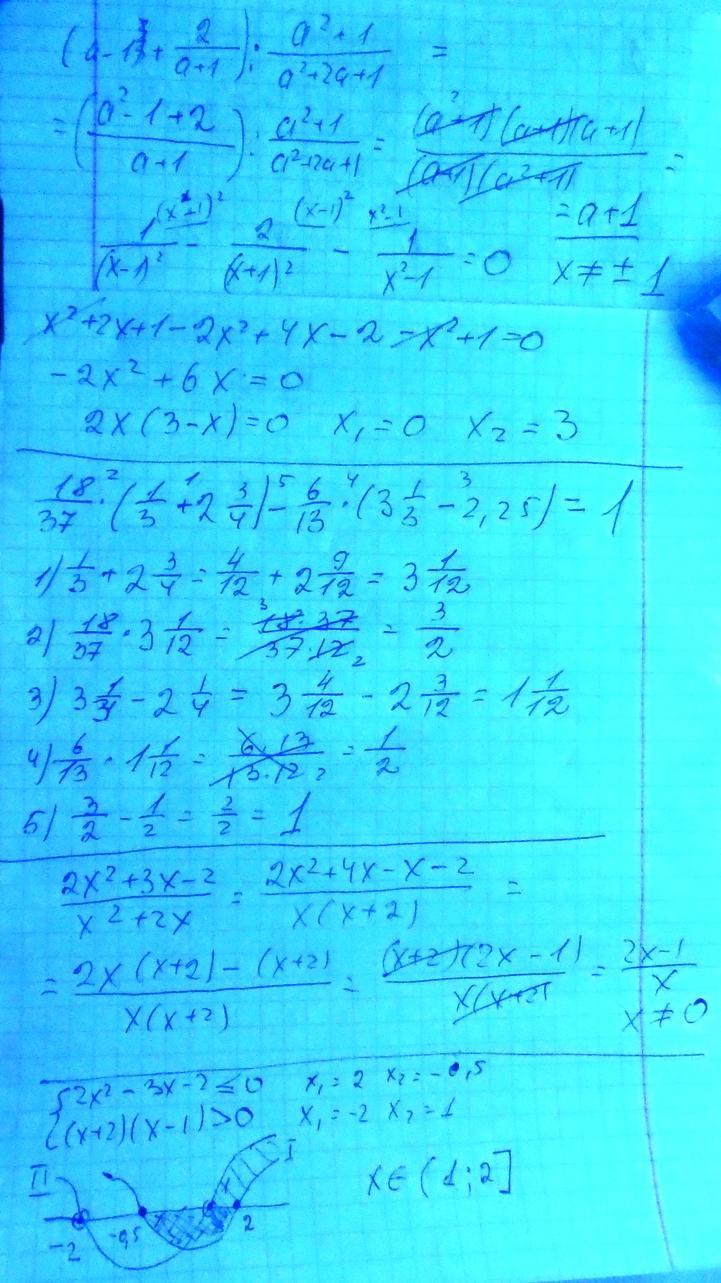 (a-1+ 2/(a+1)) : (a²+1)/(a²+2a+1) =
= ((a²-1+2)/(a+1)) : (a²+1)/(a²+2a+1) = ((a²+1)(a+1)(a+1))/((a+1)(a²+1)) =
= a+1
1/(x-1)² (x+1)² - 2/(x+1)² (x-1)² - 1/(x²-1) x²-1 = 0 x ≠ ± 1
x²+2x+1-2x²+4x-2-x²+1=0
-2x²+6x=0
2x(3-x)=0 x₁=0 x₂=3
18/37 ·² (1/3 +¹ 2 3/4) -⁵ 6/13 ·⁴ (3 1/3 -³ 2,25) = 1
1) 1/3 + 2 3/4 = 4/12 + 2 9/12 = 3 1/12
2) 18/37 · 3 1/12 = (18·37)/(37·12) 3 2 = 3/2
3) 3 1/3 - 2 1/4 = 3 4/12 - 2 3/12 = 1 1/12
4) 6/13 · 1 1/12 = (6·13)/(13·12) 2 = 1/2
5) 3/2 - 1/2 = 2/2 = 1
(2x²+3x-2)/(x²+2x) = (2x²+4x-x-2)/(x(x+2)) =
= (2x(x+2)-(x+2))/(x(x+2)) = ((x+2)(2x-1))/(x(x+2)) = (2x-1)/x
x ≠ 0
{2x²-3x-2≤0 x₁=2 x₂=-0,5
{(x+2)(x-1)>0 x₁=-2 x₂=1
II I
x∈(1;2]
-2 -0,5 2